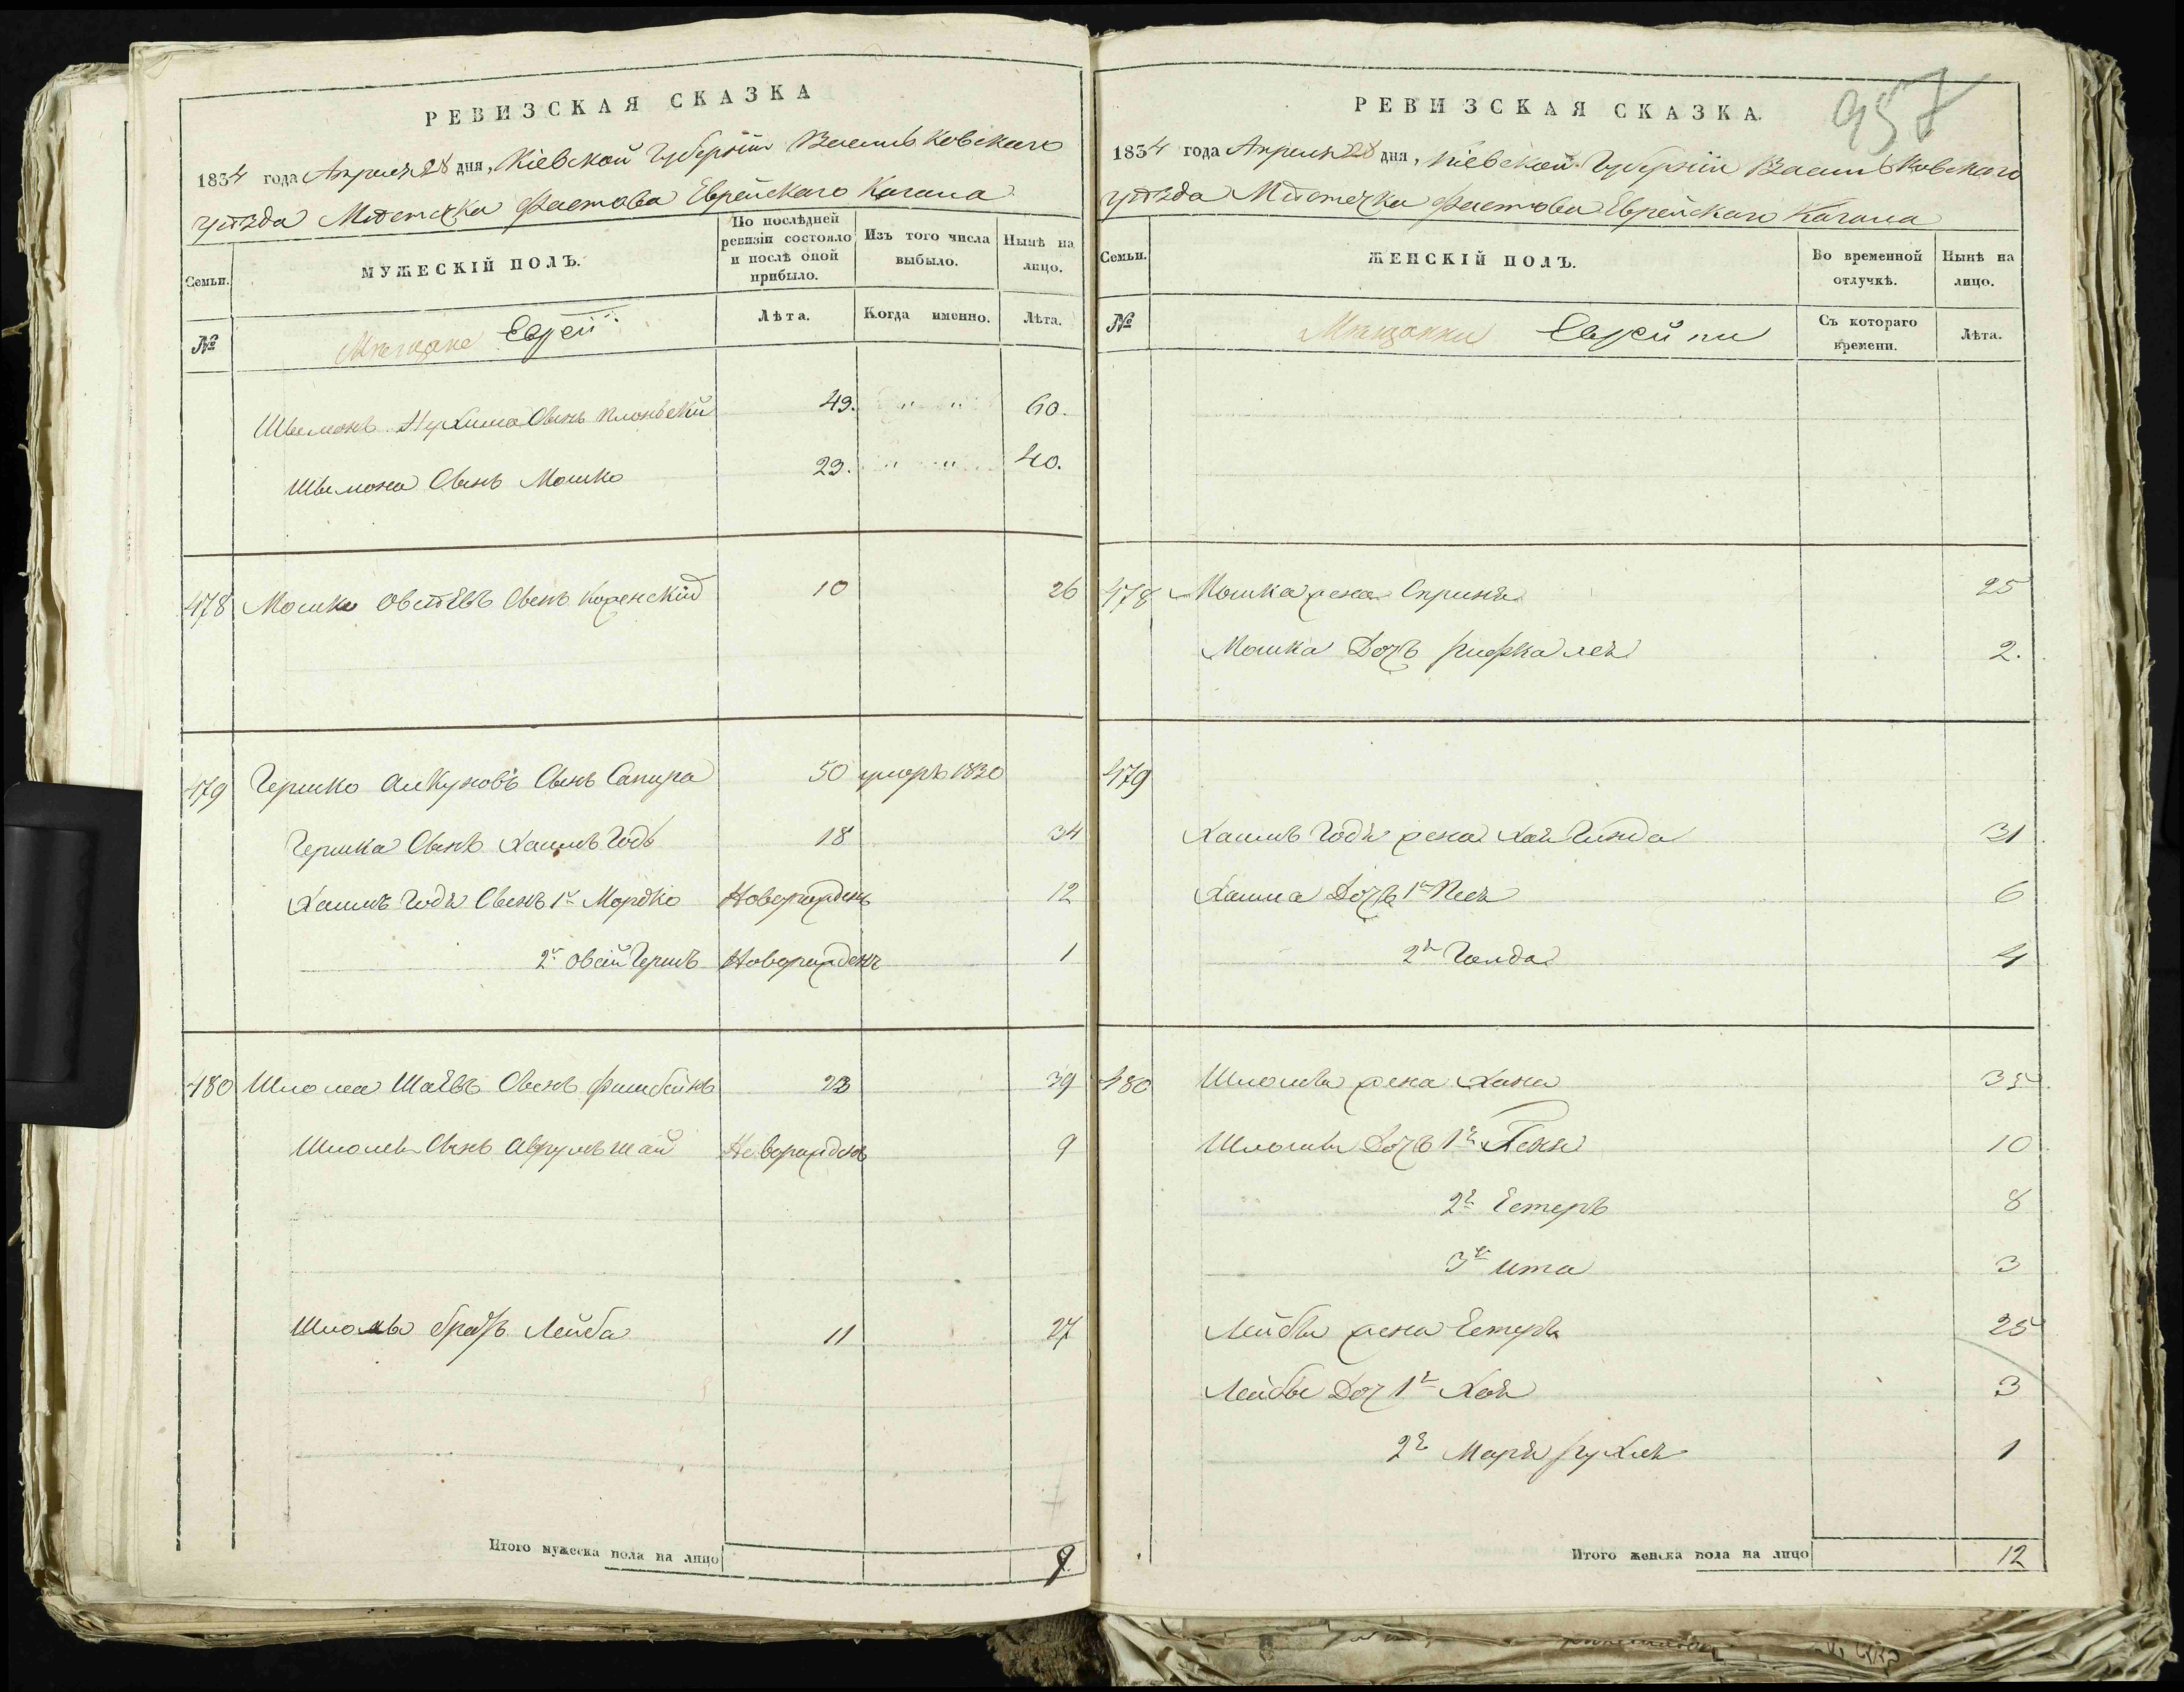 РЕВИЗСКАЯ СКАЗКА
1834 года Апреля 28 дня, Кіевской Губерніи Васильковскаго
уѣзда Мѣстечка Фастова Еврейскаго Кагала
Семьи.
МУЖЕСКІЙ ПОЛЪ.
По послѣдней ревизіи состояло и послѣ оной прибыло.
Изъ того числа выбыло.
Нынѣ на лицо.
№
Мѣщане Евреи
Лѣта.
Когда именно.
Лѣта.
Шимонъ Нухима Сынъ 49. " " 60.
Шимона Сынъ Мошко 29. " " 40.
478 Мошко Овсѣевъ Сынъ Коренскій 10 26
479 Гершко Сынъ Сапира 50 умеръ 1830
Гершка Сынъ Хаимъ Годъ 18 34
Хаимъ Годя Сынъ 1й Мордко Новорожденъ 12
2й Овсій Гершъ Новорожденъ 1
480 Шлома Шаевъ Сынъ Фишбейнъ 23 39
Шломы Сынъ Аврумъ Шай Новорожденъ 9
Шломы братъ Лейба 11 27
Итого мужеска пола на лицо 9.
957
РЕВИЗСКАЯ СКАЗКА.
1834 года Апреля 28 дня, Кіевской Губерніи Васильковскаго
уѣзда Мѣстечка Фастова Еврейскаго Кагала
Семьи.
ЖЕНСКІЙ ПОЛЪ.
Во временной отлучкѣ.
Нынѣ на лицо.
№
Мѣщанки Еврейки
Съ котораго времени.
Лѣта.
478 Мошка жена Сприня 25
Мошка Дочь Рифка Лея 2.
479
Хаимъ Годя жена Хая Гинда 31
Хаима Дочь 1я Песя 6
2я Голда 4
480 Шломы жена Хана 35
Шломы Дочь 1я 10
2я Естеръ 8
3я Ита 3
Лейбы жена Естеръ 25
Лейбы Доч 1я Хая 3
2я Маря Рухля 1
Итого женска пола на лицо 12